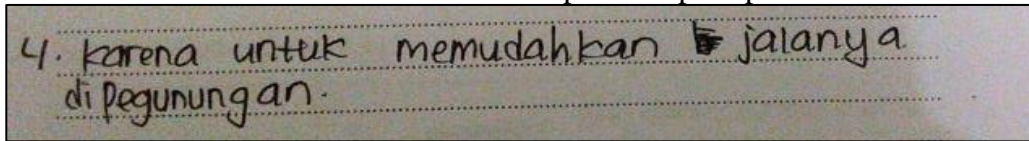 4. karena untuk memudahkan jalanya
di pegunungan.